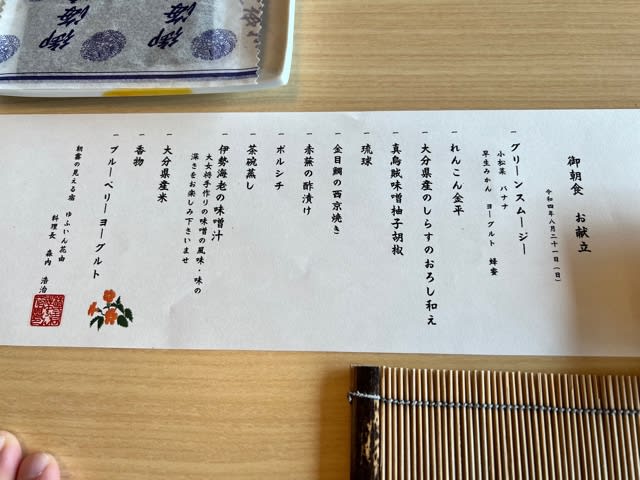 御朝食 お献立
令和四年八月二十一日(日)
一 グリーンスムージー
小松菜 バナナ
早生みかん ヨーグルト 蜂蜜
一 れんこん金平
一 大分県産のしらすのおろし和え
一 真烏賊味噌柚子胡椒
一 琉球
一 金目鯛の西京焼き
一 赤蕪の酢漬け
一 ボルシチ
一 茶碗蒸し
一 伊勢海老の味噌汁
大女将手作りの味噌の風味・味の
深さをお楽しみ下さいませ
一 大分県産米
一 香物
一 ブルーベリーヨーグルト
朝霧の見える宿 ゆふいん花由
料理長 森内 浩治
御
海
御
海